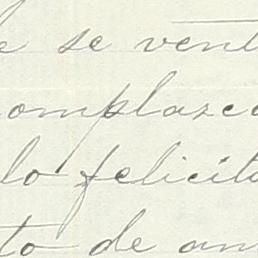 e se vent
omplazco
lo felicita
to de am